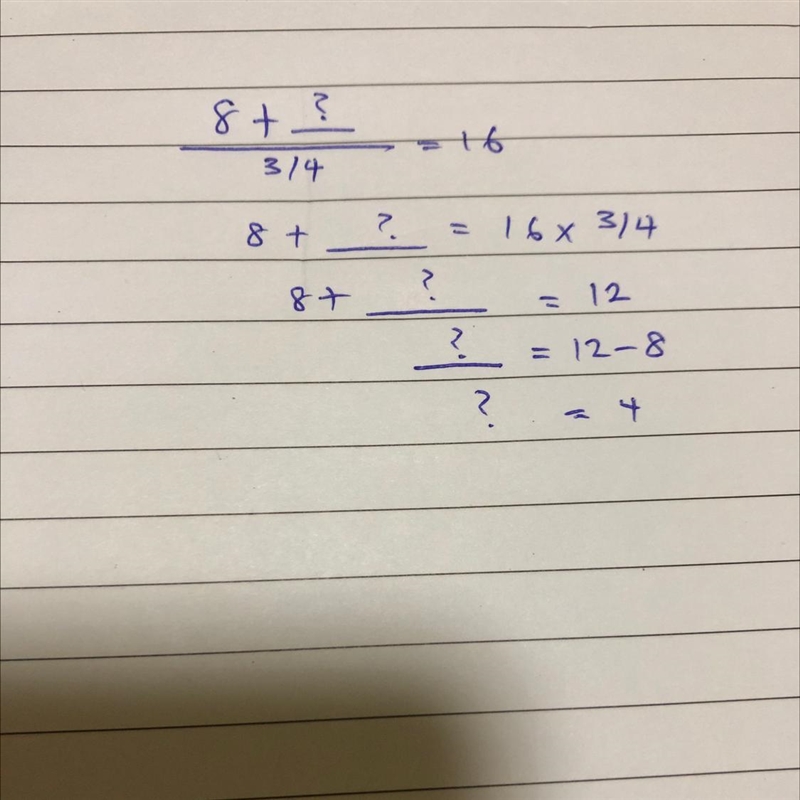 8 + ?
3/4 = 16
8 + ? = 16 x 3/4
8 + ? = 12
? = 12 - 8
? = 4